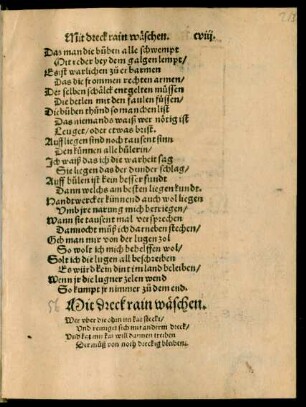 Mit dreck rain wäschen. cviij.
Das man die bůben alle schwempt
Mit reder bey dem galgen lempt/
Es ist warlichen zů erbarmen
Das die frommen rechten armen/
Der selben schälck entgelten müssen
Die betlen mit den faulen füssen/
Die bůben thünd so manchen list
Das niemands waiß wer nötig ist
Leuget/ oder etwas brist.
Auff liegen sind noch tausent sinn
Den künnen alle bůlerin/
Ich waiß das ich die warheit sag
Sie liegen das der dunder schlag/
Auff bůlen ist kein besser fundt
Dann welchs am besten liegen kundt.
Handtwercker künnend auch wol liegen
Umb jre narung mich betriegen/
Wann sie tausent mal versprechen
Dannocht můß ich darneben stechen/
Geb man mir von der lugen zol
So wolt ich mich behelffen wol/
Solt ich die lugen all beschreiben
Es würd kein dint im land beleiben/
Wenn jr die lugner zelen wend
So kumpt jr nimmer zů dem end.
Mit dreck rain wäschen.
Wer uber die ohm im kat steckt/
Und reiniget sich mit anderm dreck/
Und kat mit kat will dannen treiben
Der můß von noch dreckig bleiben.